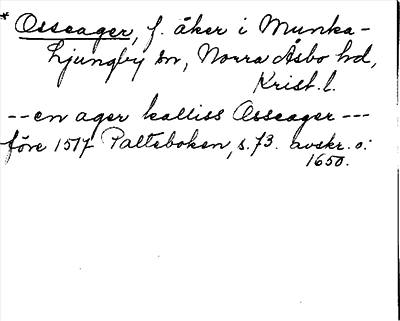 * Osseager, f. åker i Munka-
Ljungby sn, Norra Åsbo hd,
Krist. l.
--en ager kalliss Osseager ---
före 1517 Palteboken, s. 73. avskr. o.
1650.